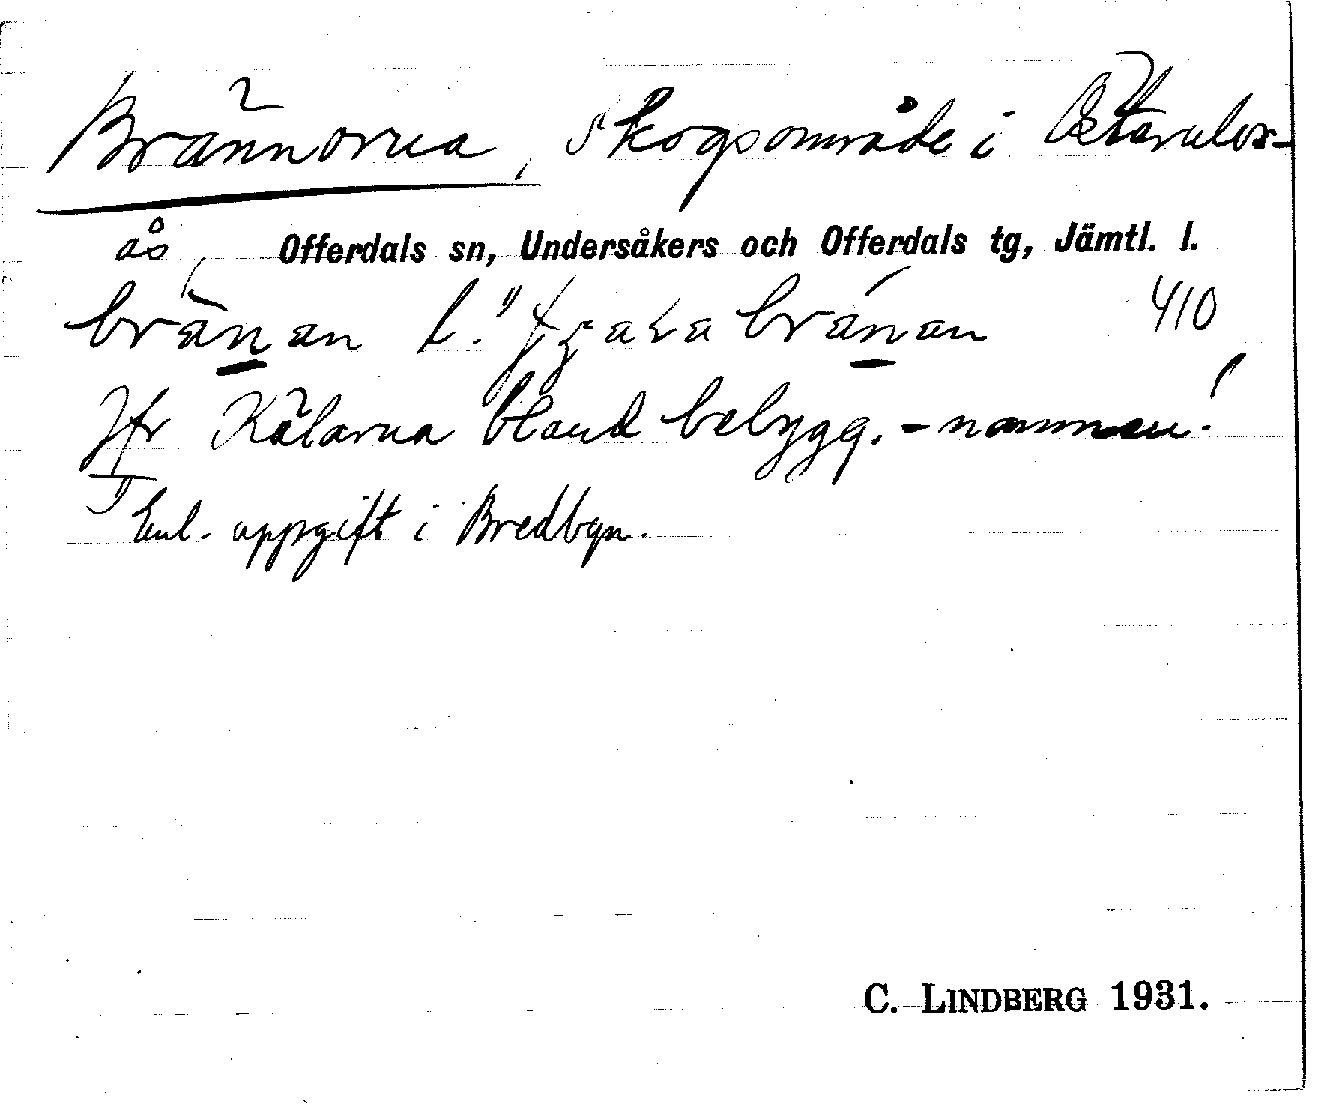 Brännorna, skogsområde i
ås, Offerdals sn, Undersåkers och Offerdals tg, Jämtl. l.
brä̀nan l. brä́nan 410
Jfr Kälarna bland bebygg.-namnen!
1) Enl. uppgift i Bredbyn.
C. LINDBERG 1931.